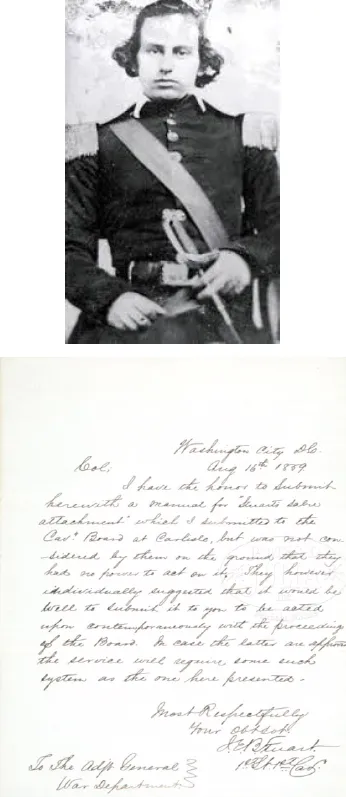 Washington City D.C.
Aug 16th 1859
Col,
I have the honor to submit
herewith a manual for "Stuarts sabre
attachment" which I submitted to the
Cavy. Board at Carlisle, but was not con-
sidered by them on the ground that they
had no power to act on it. They however
individually suggested that it would be
well to submit it to you to be acted
upon contemporaneously with the proceeding
of the Board. In case the latter are approv
the service will require some such
system as the one here presented.
Most Respectfully
Your Obt Svt.
J.E.B. Stuart.
1st Lt 1st Cavy.
To The Adjt General
War Department